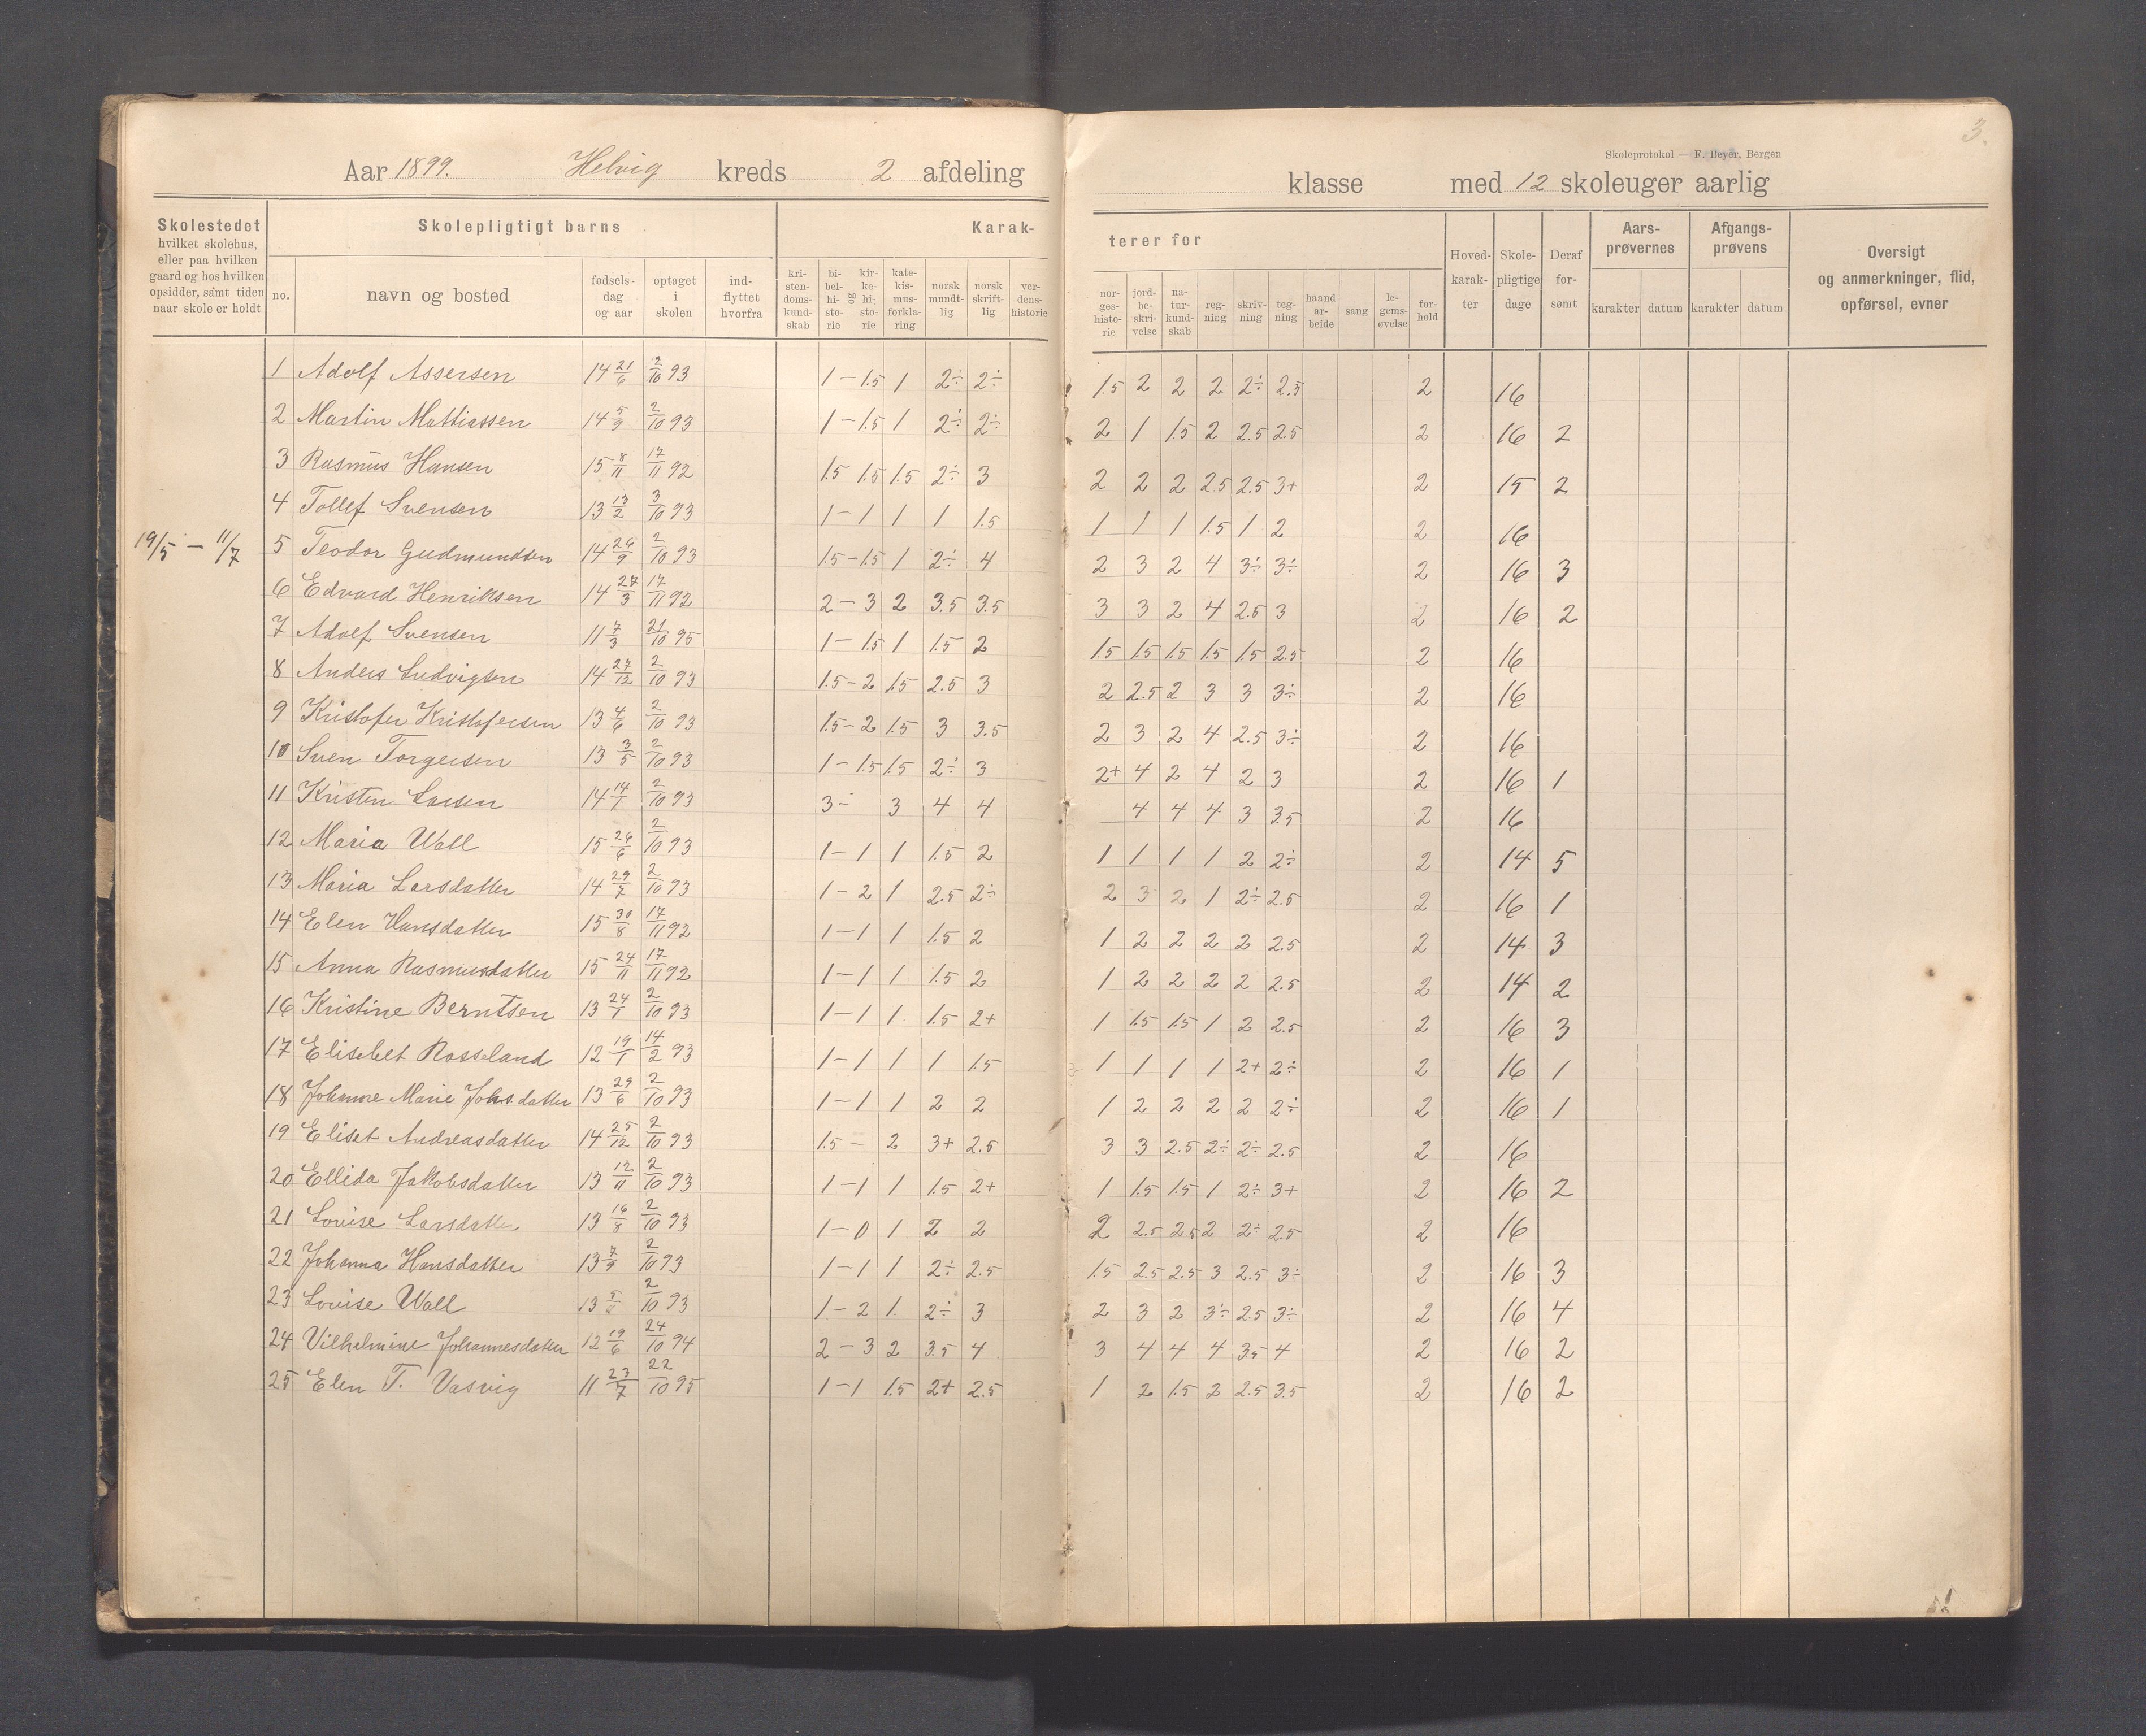 3.
Skoleprotokol — F. Beyer, Bergen
Aar 1899. Helvig kreds 2 afdeling klasse med 12 skoleuger aarlig
Skolestedet hvilket skolehus, eller paa hvilken gaard og hos hvilken opsidder, samt tiden naar skole er holdt
Skolepligtigt barns
no. navn og bosted fødsels-dag og aar optaget i skolen ind-flyttet hvorfra
Karak-terer for
kri-sten-doms-kund-skab bi-bel-hi-sto-rie og kir-ke-hi-sto-rie kate-kis-mus-forkla-ring norsk mundt-lig norsk skrift-lig ver-dens-historie nor-ges-histo-rie jord-be-skri-velse na-tur-kund-skab reg-ning skriv-ning teg-ning haand ar-beide sang le-gems-øvelse for-hold
Hoved-karak-ter Skole-pligtige dage Deraf for-sømt
Aars-prøvernes karakter datum
Afgangs-prøvens karakter datum
Oversigt og anmerkninger, flid, opførsel, evner
1 Adolf Assersen 14 21/6 2/10 93 1 – 1.5 1 2÷ 2÷ 1.5 2 2 2 2÷ 2.5 2 16
2 Martin Mattiassen 14 5/9 2/10 93 1 – 1.5 1 2÷ 2÷ 2 1 1.5 2 2.5 2.5 2 16 2
3 Rasmus Hansen 15 8/11 17/11 92 1.5 1.5 1.5 2÷ 3 2 2 2 2.5 2.5 3+ 2 15 2
4 Tollef Svensen 13 13/2 3/10 93 1 – 1 1 1 1.5 1 1 1 1.5 1 2 2 16
19/5 – 11/7 5 Teodor Gudmundsen 14 26/9 2/10 93 1.5 – 1.5 1 2÷ 4 2 3 2 4 3÷ 3÷ 2 16 3
6 Edvard Henriksen 14 27/3 17/11 92 2 – 3 2 3.5 3.5 3 3 2 4 2.5 3 2 16 2
7 Adolf Svensen 11 7/3 21/10 95 1 – 1.5 1 1.5 2 1.5 1.5 1.5 1.5 1.5 2.5 2 16
8 Anders Ludvigsen 14 27/12 2/10 93 1.5 – 2 1.5 2.5 3 2 2.5 2 3 3 3÷ 2 16
9 Kristofer Kristofersen 13 4/6 2/10 93 1.5 – 2 1.5 3 3.5 2 3 2 4 2.5 3÷ 2 16
10 Sven Torgersen 13 3/5 2/10 93 1 – 1.5 1.5 2÷ 3 2+ 4 2 4 2 3 2 16 1
11 Kristen Larsen 14 14/1 2/10 93 3 – 3 4 4 4 4 4 3 3.5 2 16
12 Maria Wall 15 26/6 2/10 93 1 – 1 1 1.5 2 1 1 1 1 2 2÷ 2 14 5
13 Maria Larsdatter 14 29/7 2/10 93 1 – 2 1 2.5 2÷ 2 3 2 1 2÷ 2.5 2 16 1
14 Elen Hansdatter 15 30/8 17/11 92 1 – 1 1 1.5 2 1 2 2 2 2 2.5 2 14 3
15 Anna Rasmusdatter 15 24/11 17/11 92 1 – 1 1 1.5 2 1 2 2 2 2 2.5 2 14 2
16 Kristine Berntsen 13 24/1 2/10 93 1 – 1 1 1.5 2+ 1 1.5 1.5 1 2 2.5 2 16 3
17 Elisebet Rosseland 12 19/1 14/2 93 1 – 1 1 1 1.5 1 1 1 1 2+ 2÷ 2 16 1
18 Johanne Marie Johs.datter 13 29/6 2/10 93 1 – 1 1 2 2 1 2 2 2 2 2÷ 2 16 1
19 Eliset Andreasdatter 14 25/12 2/10 93 1.5 – 2 3+ 2.5 3 3 2.5 2÷ 2÷ 2.5 2 16
20 Ellida Jakobsdatter 13 12/11 2/10 93 1 – 1 1 1.5 2+ 1 1.5 1.5 1 2÷ 3+ 2 16 2
21 Lovise Larsdatter 13 16/8 2/10 93 1 – 0 1 2 2 2 2.5 2.5 2 2÷ 2.5 2 16
22 Johanna Hansdatter 13 7/9 2/10 93 1 – 1 1 2÷ 2.5 1.5 2.5 2.5 3 2.5 3÷ 2 16 3
23 Lovise Wall 13 2/10 93 1 – 2 1. 2÷ 3 2 3 2 3÷ 2.5 3÷ 2 16 4
24 Vilhelmine Johannesdatter 12 19/6 24/10 94 2 – 3 2 3.5 4 3 4 4 4 3.5 4 2 16 2
25 Elen T. Vasvig 11 23/7 22/10 95 1 – 1 1.5 2+ 2.5 1 2 1.5 2 2.5 3.5 2 16 2